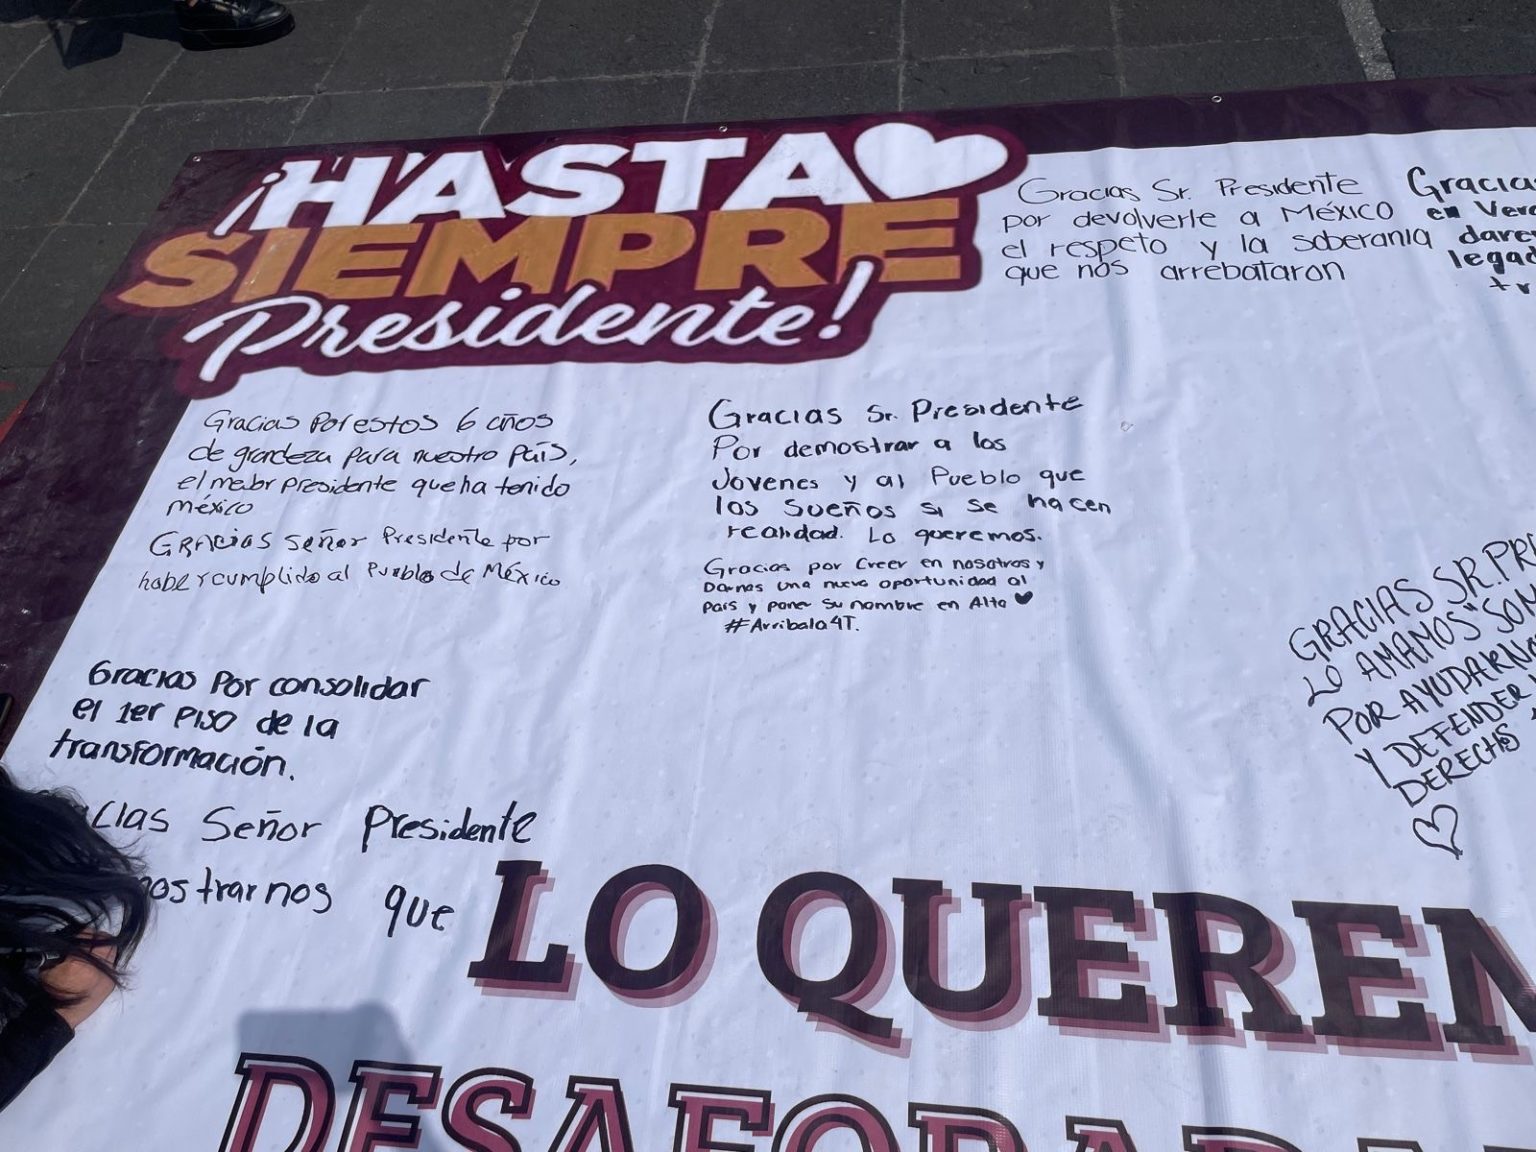 ¡HASTA
SIEMPRE
Presidente!
Gracias Sr. Presidente
por devolverle a México
el respeto y la soberanía
que nos arrebataron
Gracias
en
legad
Gracias Por estos 6 años
de grandeza para nuestro país,
el mejor presidente que ha tenido
méxico
Gracias señor Presidente por
haber cumplido al Pueblo de México
Gracias Sr. Presidente
Por demostrar a los
Jovenes y al Pueblo que
los Sueños si se hacen
realidad. Lo queremos.
Gracias por Creer en nosotros y
Darnos una nueva oportunidad al
País y poner Su nombre en Alto
#Arribala4T.
Gracias Por consolidar
el 1er PISO de la
transformación.
cias Señor Presidente
mostrarnos que
GRACIAS SR. PR
LO AMAMOS "SON
POR AYUDARN
Y DEFENDER
DERECHOS
LO QUEREM
DESAFORADA